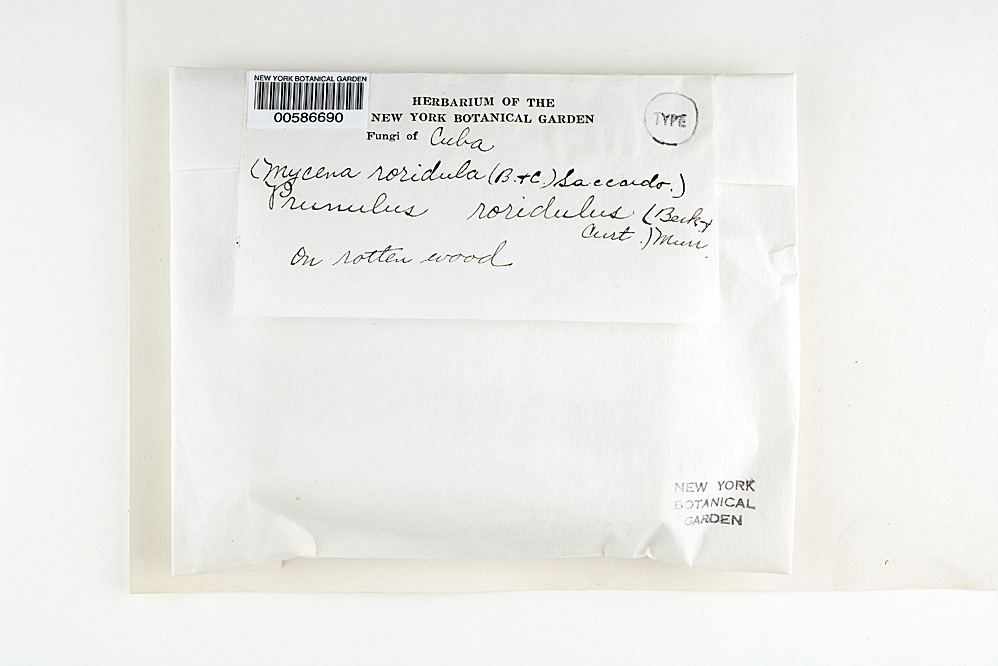 NEW YORK BOTANICAL GARDEN
00586690
HERBARIUM OF THE
NEW YORK BOTANICAL GARDEN
TYPE
Fungi of Cuba
(Mycena roridula (B.+C.) Saccardo.)
Prunulus roridulus (Berk +
Curt.) Murr.
On rotten wood
NEW YORK
BOTANICAL
GARDEN